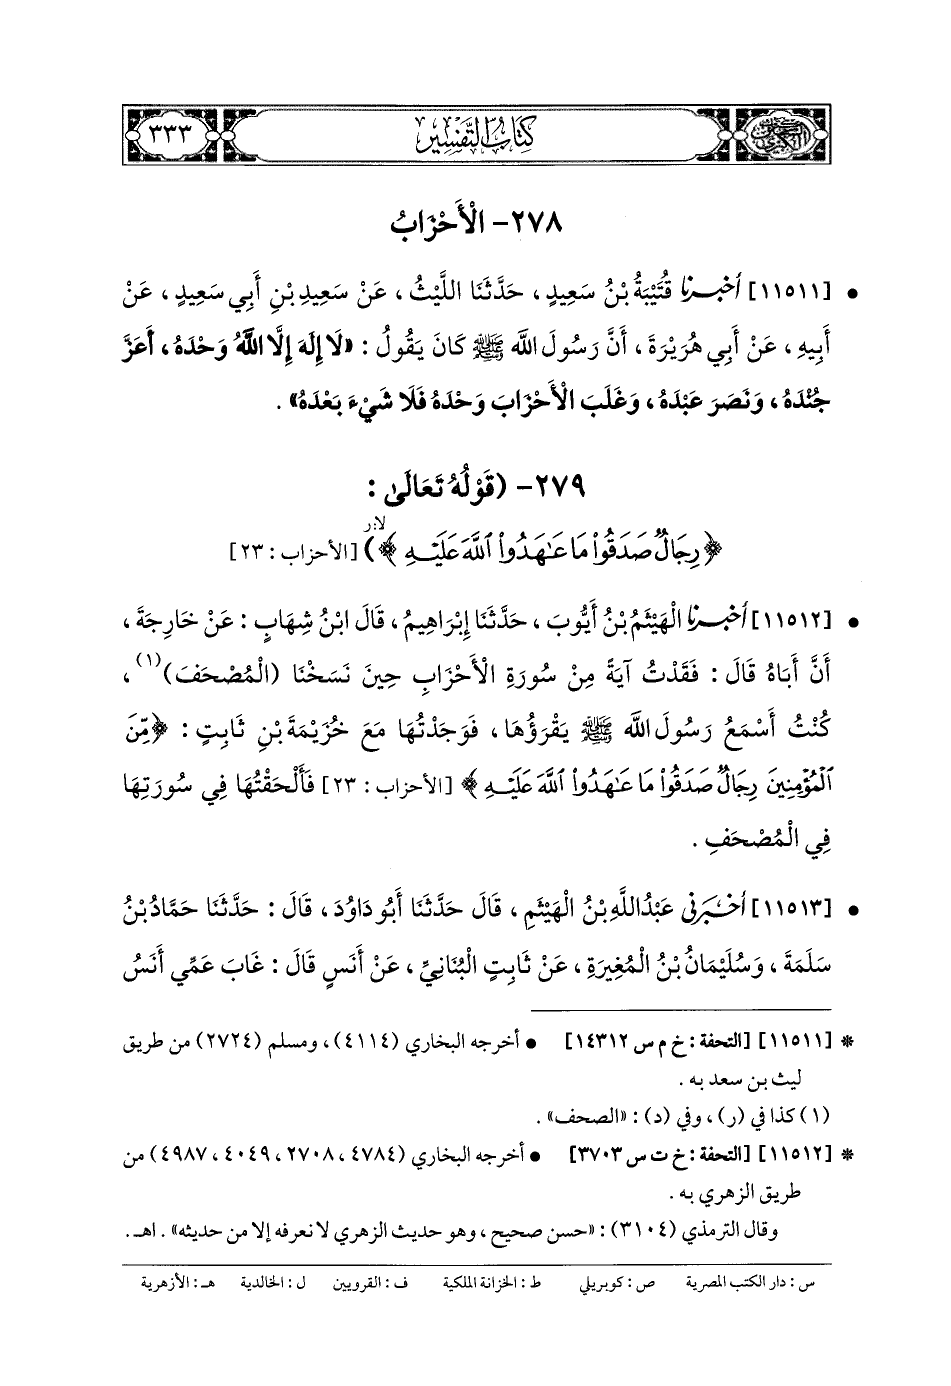 كتاب التفسير
٣٣٣
٢٧٨- الْأَحْزَابُ
• [١١٥١١] أخبرنا قُتَيْبَةُ بْنُ سَعِيدٍ، حَدَّثَنَا اللَّيْثُ، عَنْ سَعِيدِ بْنِ أَبِي سَعِيدٍ، عَنْ
أَبِيهِ، عَنْ أَبِي هُرَيْرَةَ، أَنَّ رَسُولَ اللَّهِ ﷺ كَانَ يَقُولُ: «لَا إِلَهَ إِلَّا اللَّهُ وَحْدَهُ، أَعَزَّ
جُنْدَهُ، وَنَصَرَ عَبْدَهُ، وَغَلَبَ الْأَحْزَابَ وَحْدَهُ فَلَا شَيْءَ بَعْدَهُ».
٢٧٩- (قَوْلُهُ تَعَالَى:
﴿رِجَالٌ صَدَقُوا۟ مَا عَـٰهَدُوا۟ ٱللَّهَ عَلَيْهِ﴾) لا:ر [الأحزاب: ٢٣]
• [١١٥١٢] أخبرنا الْهَيْثَمُ بْنُ أَيُّوبَ، حَدَّثَنَا إِبْرَاهِيمُ، قَالَ ابْنُ شِهَابٍ: عَنْ خَارِجَةَ،
أَنَّ أَبَاهُ قَالَ: فَقَدْتُ آيَةً مِنْ سُورَةِ الْأَحْزَابِ حِينَ نَسَخْنَا (الْمُصْحَفَ)(١)،
كُنْتُ أَسْمَعُ رَسُولَ اللَّهِ ﷺ يَقْرَؤُهَا، فَوَجَدْتُهَا مَعَ خُزَيْمَةَ بْنِ ثَابِتٍ: ﴿مِّنَ
ٱلْمُؤْمِنِينَ رِجَالٌ صَدَقُوا۟ مَا عَـٰهَدُوا۟ ٱللَّهَ عَلَيْهِ﴾ [الأحزاب: ٢٣] فَأَلْحَقْتُهَا فِي سُورَتِهَا
فِي الْمُصْحَفِ.
• [١١٥١٣] أخبرني عَبْدُ اللَّهِ بْنُ الْهَيْثَمِ، قَالَ حَدَّثَنَا أَبُو دَاوُدَ، قَالَ: حَدَّثَنَا حَمَّادُ بْنُ
سَلَمَةَ، وَسُلَيْمَانُ بْنُ الْمُغِيرَةِ، عَنْ ثَابِتٍ الْبُنَانِيِّ، عَنْ أَنَسٍ قَالَ: غَابَ عَمِّي أَنَسُ
* [١١٥١١] [التحفة: خ م س ١٤٣١٢] • أخرجه البخاري (٤١١٤)، ومسلم (٢٧٢٤) من طريق
ليث بن سعد به.
(١) كذا في (ر)، وفي (د): «الصحف».
* [١١٥١٢] [التحفة: خ ت س ٣٧٠٣] • أخرجه البخاري (٤٧٨٤، ٢٧٠٨، ٤٠٤٩، ٤٩٨٧) من
طريق الزهري به.
وقال الترمذي (٣١٠٤): «حسن صحيح، وهو حديث الزهري لا نعرفه إلا من حديثه». اهـ.
س: دار الكتب المصرية ص: كوبريلي ط: الخزانة الملكية ف: القرويين ل: الخالدية هـ: الأزهرية